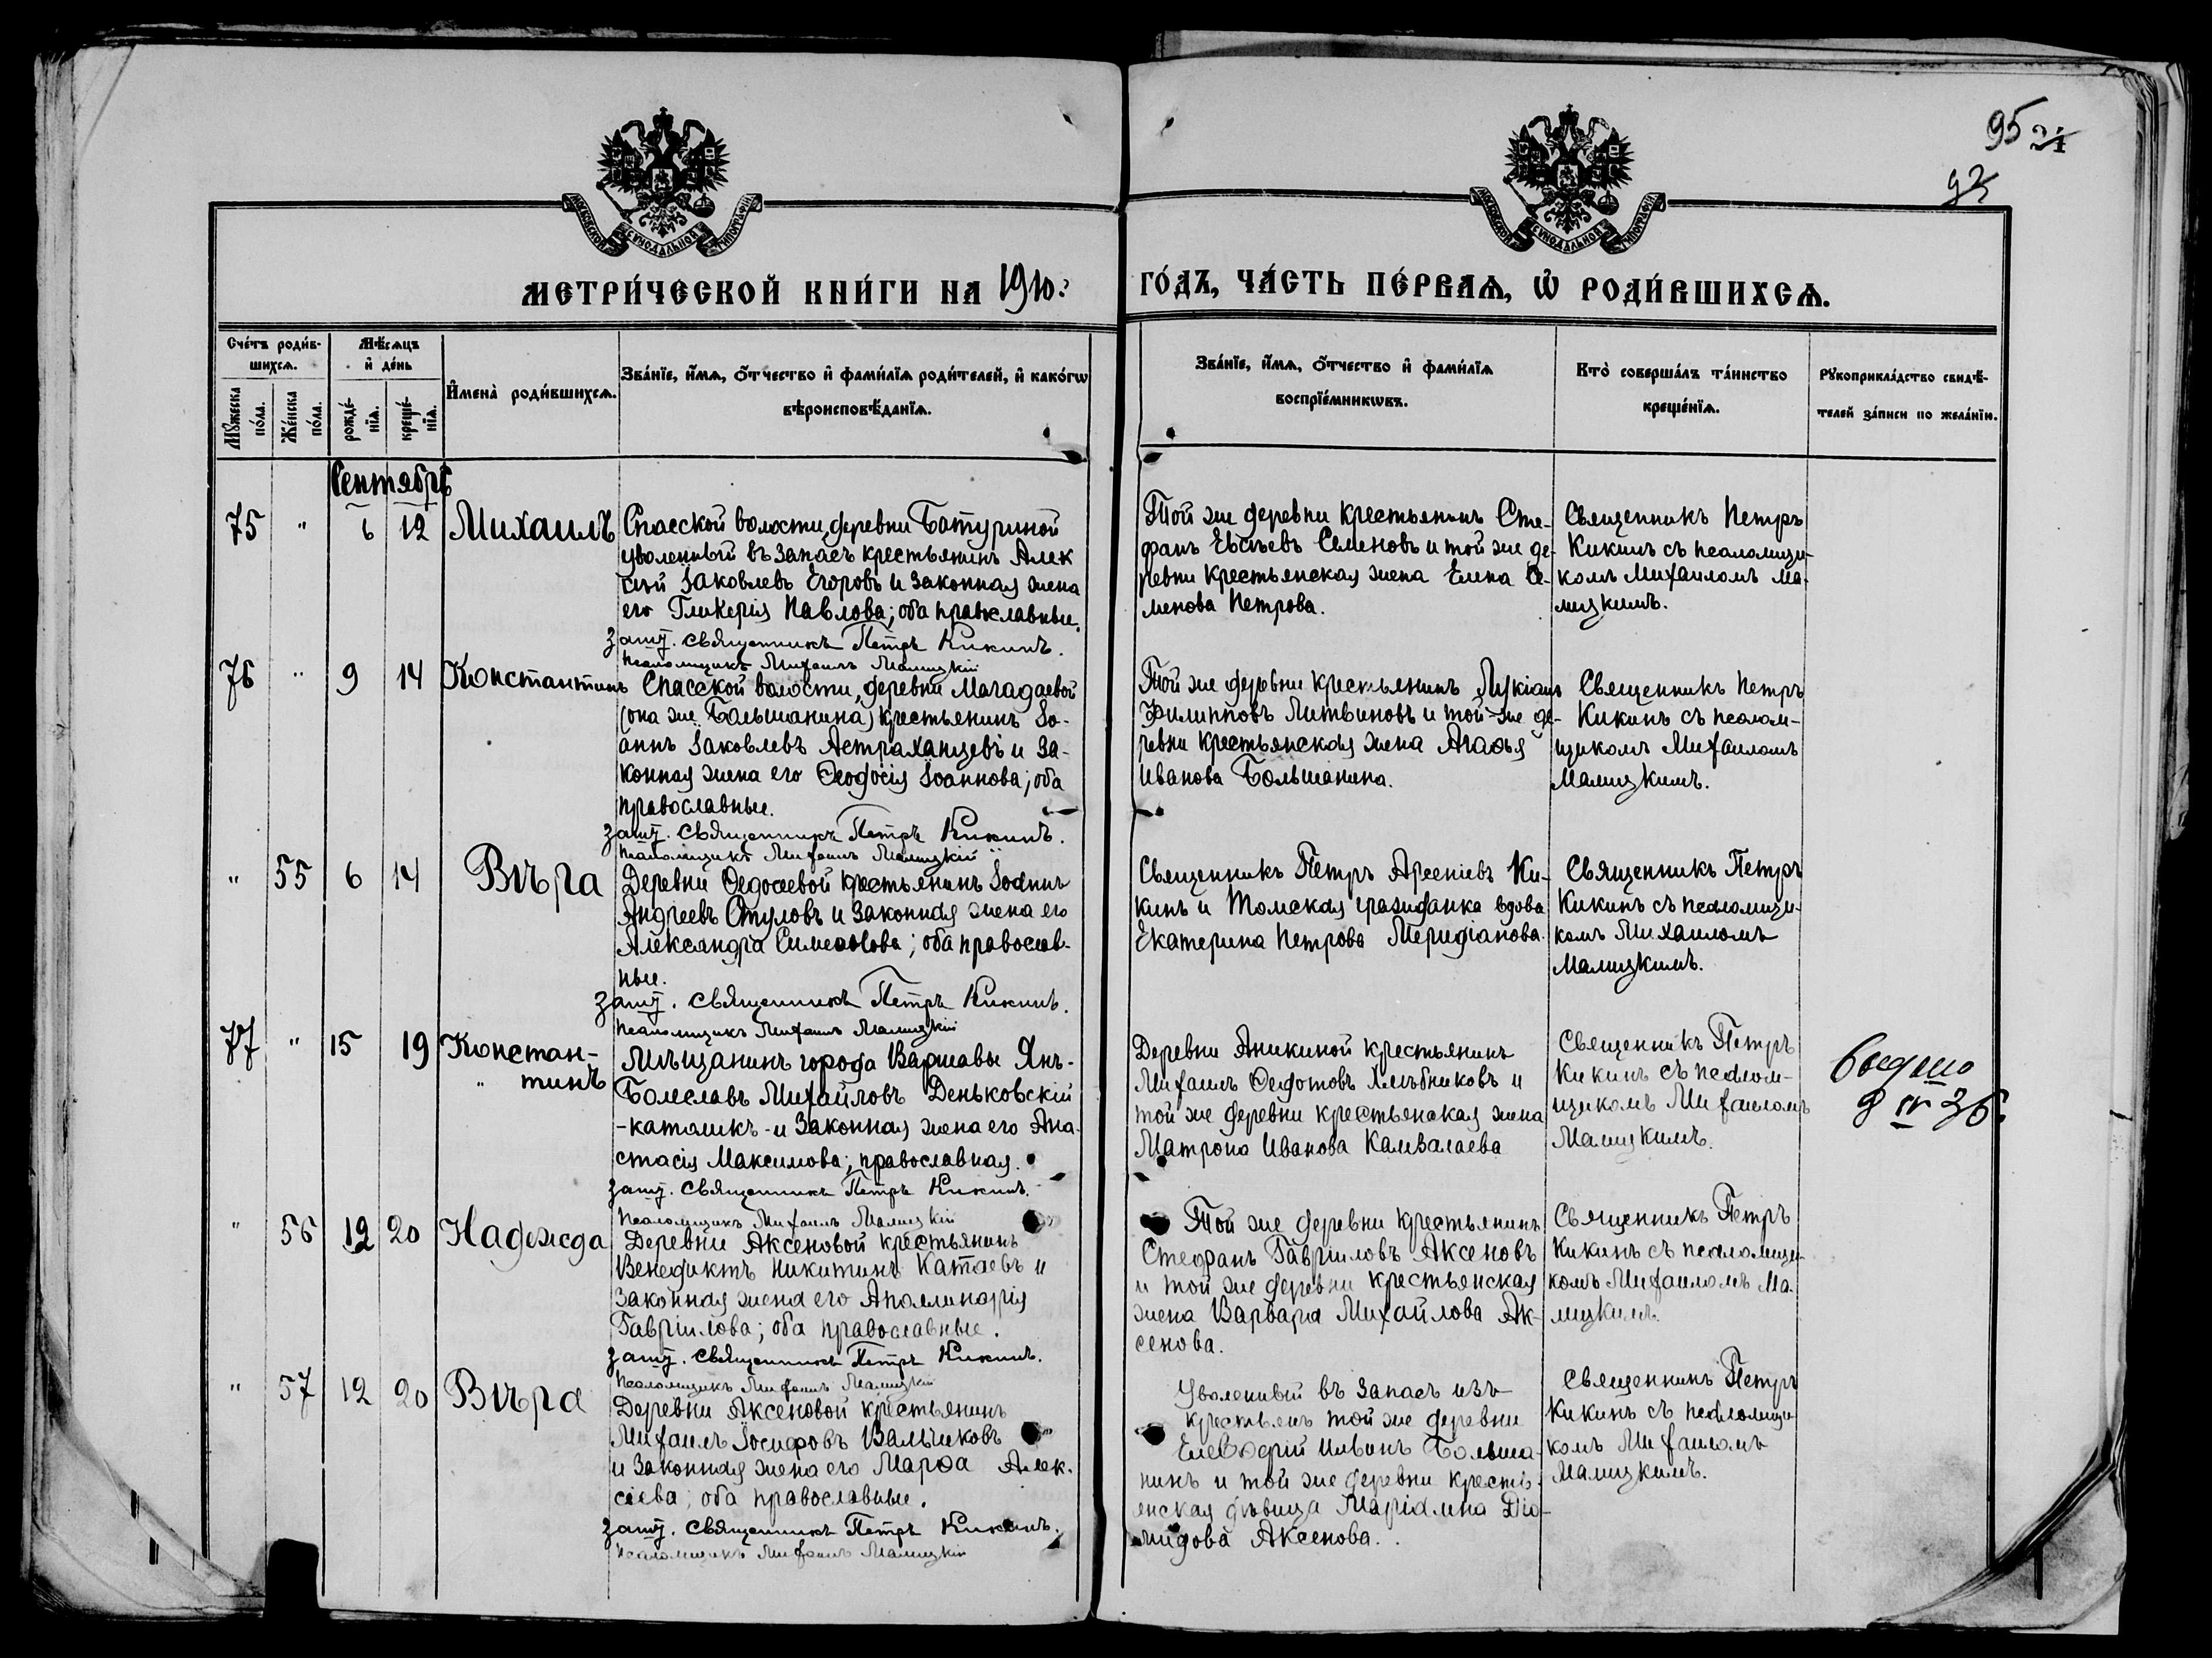 95 24
93
МОСКОВСКОЙ СѴНОДАЛЬНОЙ ТИПОГРАФІИ
МОСКОВСКОЙ СѴНОДАЛЬНОЙ ТИПОГРАФІИ
МЕТРИ́ЧЕСКОЙ КНИ́ГИ НА 1910 г. ГО́ДЪ, ЧА́СТЬ ПЕ́РВАѦ, Ѡ҆ РОДИ́ВШИХСѦ.
Сче́тъ роди́в-
шихсѧ.
Мѣ́сѧцъ
и҆ де́нь
Мꙋ́жеска
по́ла.
Же́нска
по́ла.
рожде́-
нїѧ.
креще́-
нїѧ.
И҆мена̀ роди́вшихсѧ.
Зва́нїе, и҆́мѧ, ѻ҆́тчество и҆ фами́лїѧ роди́телей, и҆ како́гѡ
вѣроисповѣ́данїѧ.
Зва́нїе, и҆́мѧ, ѻ҆́тчество и҆ фами́лїѧ
воспрїе́мникѡвъ.
Кто̀ соверша́лъ та́инство
креще́нїѧ.
Рꙋкоприкла́дство свидѣ́-
телей за́писи по жела́нїю.
Сентябрь
75 " 6 12 Михаилъ
Спасской волости, деревни Батуриной
уволенный въ запасъ крестьянинъ Алек
сѣй Іаковлевъ Егоровъ и законная жена
его Гликерія Павлова; оба православные.
Защ. священникъ Петръ Кикинъ.
Псаломщикъ Михаилъ Малицкій
Той же деревни крестьянинъ Сте-
фанъ Евсѣевъ Семеновъ и той же де-
ревни крестьянская жена Елена Се-
менова Петрова.
Священникъ Петръ
Кикинъ съ псаломщи-
комъ Михаиломъ Ма-
лицкимъ.
76 " 9 14 Константинъ
Спасской волости, деревни Магадаевой
(она же Большанина) крестьянинъ Іо-
аннъ Іаковлевъ Астраханцевъ и за-
конная жена его Ѳеодосія Іоаннова; оба
православные.
Защ. священникъ Петръ Кикинъ.
Псаломщикъ Михаилъ Малицкій
Той же деревни крестьянинъ Лукіанъ
Филипповъ Литвиновъ и той же де-
ревни крестьянская жена Агаѳья
Иванова Большанина.
Священникъ Петръ
Кикинъ съ псалом-
щикомъ Михаиломъ
Малицкимъ.
" 55 6 14 Вѣра
Деревни Ѳедосеевой крестьянинъ Іоаннъ
Андреевъ Стуловъ и законная жена его
Александра Симеонова; оба православ-
ные.
Защ. священникъ Петръ Кикинъ.
Псаломщикъ Михаилъ Малицкій
Священникъ Петръ Арсеніевъ Ки-
кинъ и Томская гражданка вдова
Екатерина Петрова Меридіанова.
Священникъ Петръ
Кикинъ съ псаломщи-
комъ Михаиломъ
Малицкимъ.
77 " 15 19 Констан-
" тинъ
Мѣщанинъ города Варшавы Янъ-
Болеславъ Михайловъ Деньковскій
-католикъ- и законная жена его Ана-
стасія Максимова; православная.
Защ. священникъ Петръ Кикинъ.
Псаломщикъ Михаилъ Малицкій
Деревни Аникиной крестьянинъ
Михаилъ Ѳедотовъ Хлѣбниковъ и
той же деревни крестьянская жена
Матрона Иванова Камзалаева
Священникъ Петръ
Кикинъ съ псалом-
щикомъ Михаиломъ
Малицкимъ.
IV 36
" 56 12 20 Надежда
Деревни Аксеновой крестьянинъ
Венедиктъ Никитинъ Катаевъ и
законная жена его Аполлинарія
Гавріилова; оба православные.
Защ. священникъ Петръ Кикинъ.
Псаломщикъ Михаилъ Малицкій
Той же деревни крестьянинъ
Стефанъ Гавріиловъ Аксеновъ
и той же деревни крестьянская
жена Варвара Михайлова Ак-
сенова.
Священникъ Петръ
Кикинъ съ псаломщи-
комъ Михаиломъ Ма-
лицкимъ.
" 57 12 20 Вѣра
Деревни Аксеновой крестьянинъ
Михаилъ Іосифовъ Вальчиковъ
и законная жена его Марѳа Алек-
сіева; оба православные.
Защ. священникъ Петръ Кикинъ.
Псаломщикъ Михаилъ Малицкій
Уволенный въ запасъ изъ
крестьянъ той же деревни
Елевѳерій Ильинъ Больша-
нинъ и той же деревни кресть-
янская дѣвица Маріамна Діо-
мидова Аксенова.
Священникъ Петръ
Кикинъ съ псаломщи-
комъ Михаиломъ
Малицкимъ.